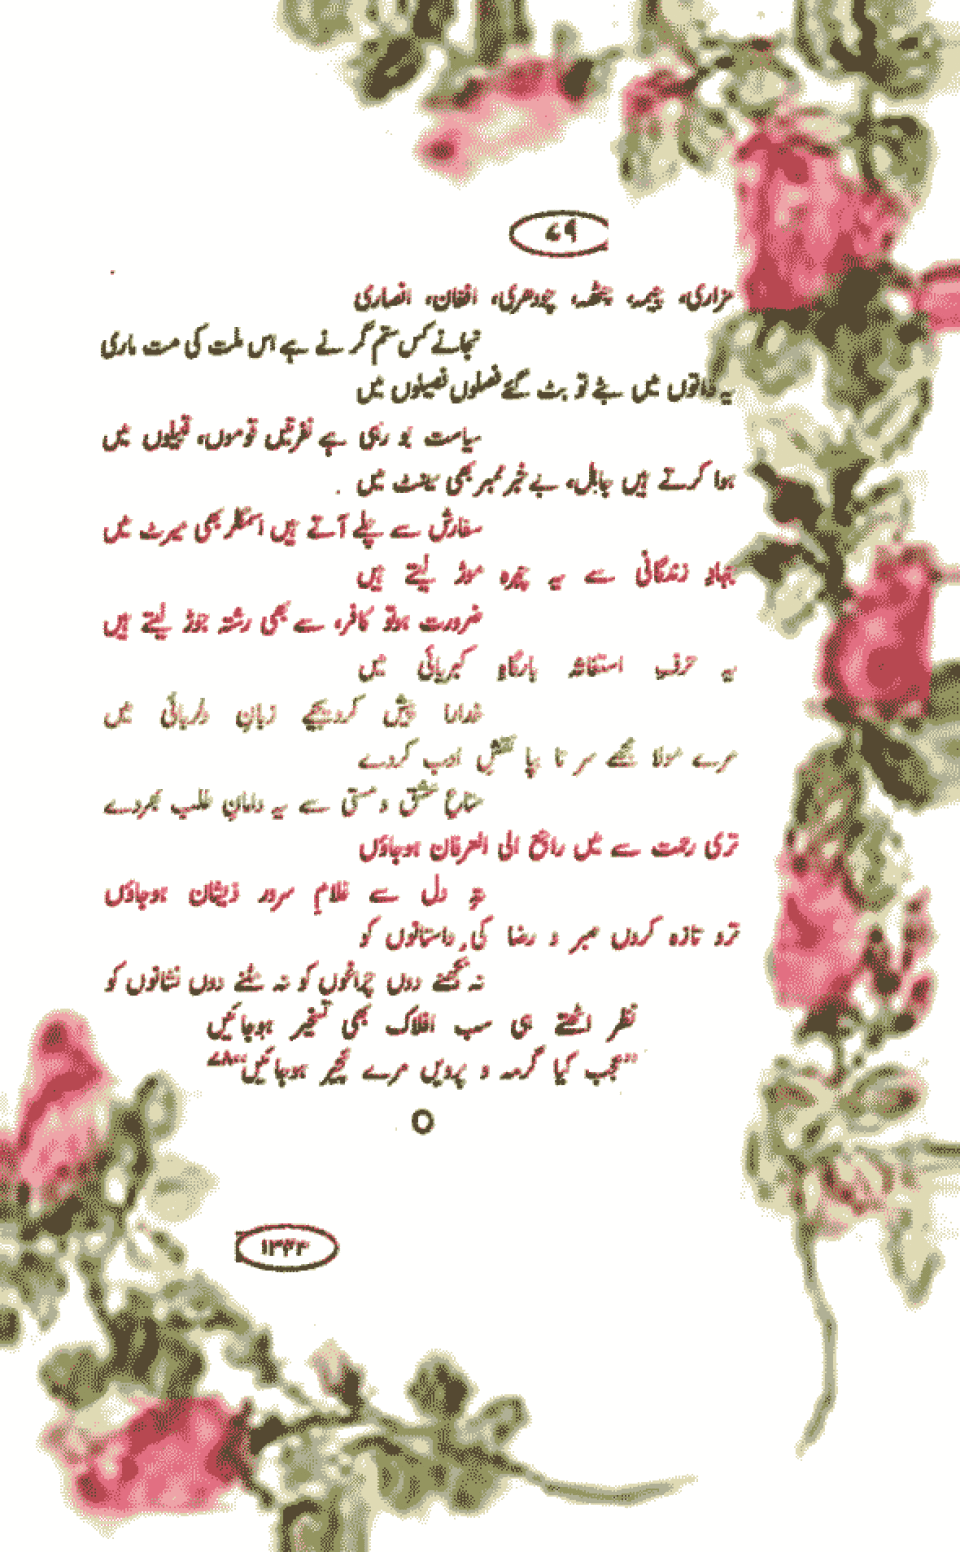 ۷۹
مزاری، چیمہ، چٹھہ، چودھری، افغان، انصاری
نجانے کس ستم گر نے ہے اس ملت کی مت ماری
یہ ذاتوں میں بنے تو بٹ گئے فصلوں فصیلوں میں
سیاست بو رہی ہے نفرتیں قوموں، قبیلوں میں
ہوا کرتے ہیں جاہل، بے خبر ممبر بھی سینٹ میں
سفارش سے چلے آتے ہیں اسمگلر بھی میرٹ میں
جہادِ زندگانی سے یہ چہرہ موڑ لیتے ہیں
ضرورت ہو تو کافر سے بھی رشتہ جوڑ لیتے ہیں
یہ حرفِ استغاثہ بارگاہِ کبریائی میں
خدارا پیش کر دیجے زبانِ دلربائی میں
مرے مولا مجھے سر تا بپا نقشِ ادب کردے
متاعِ عشق و مستی سے یہ دامانِ طلب بھردے
تری رحمت سے میں راسخ الی العرفان ہوجاؤں
دل سے غلامِ سرورِ ذیشان ہوجاؤں
تر و تازہ کروں صبر و رضا کی داستانوں کو
نہ بجھنے دوں چراغوں کو نہ مٹنے دوں نشانوں کو
نظر اٹھتے ہی سب افلاک بھی تسخیر ہوجائیں
”عجب کیا گر مہ و پرویں مرے نخچیر ہوجائیں“
۱۳۴۳